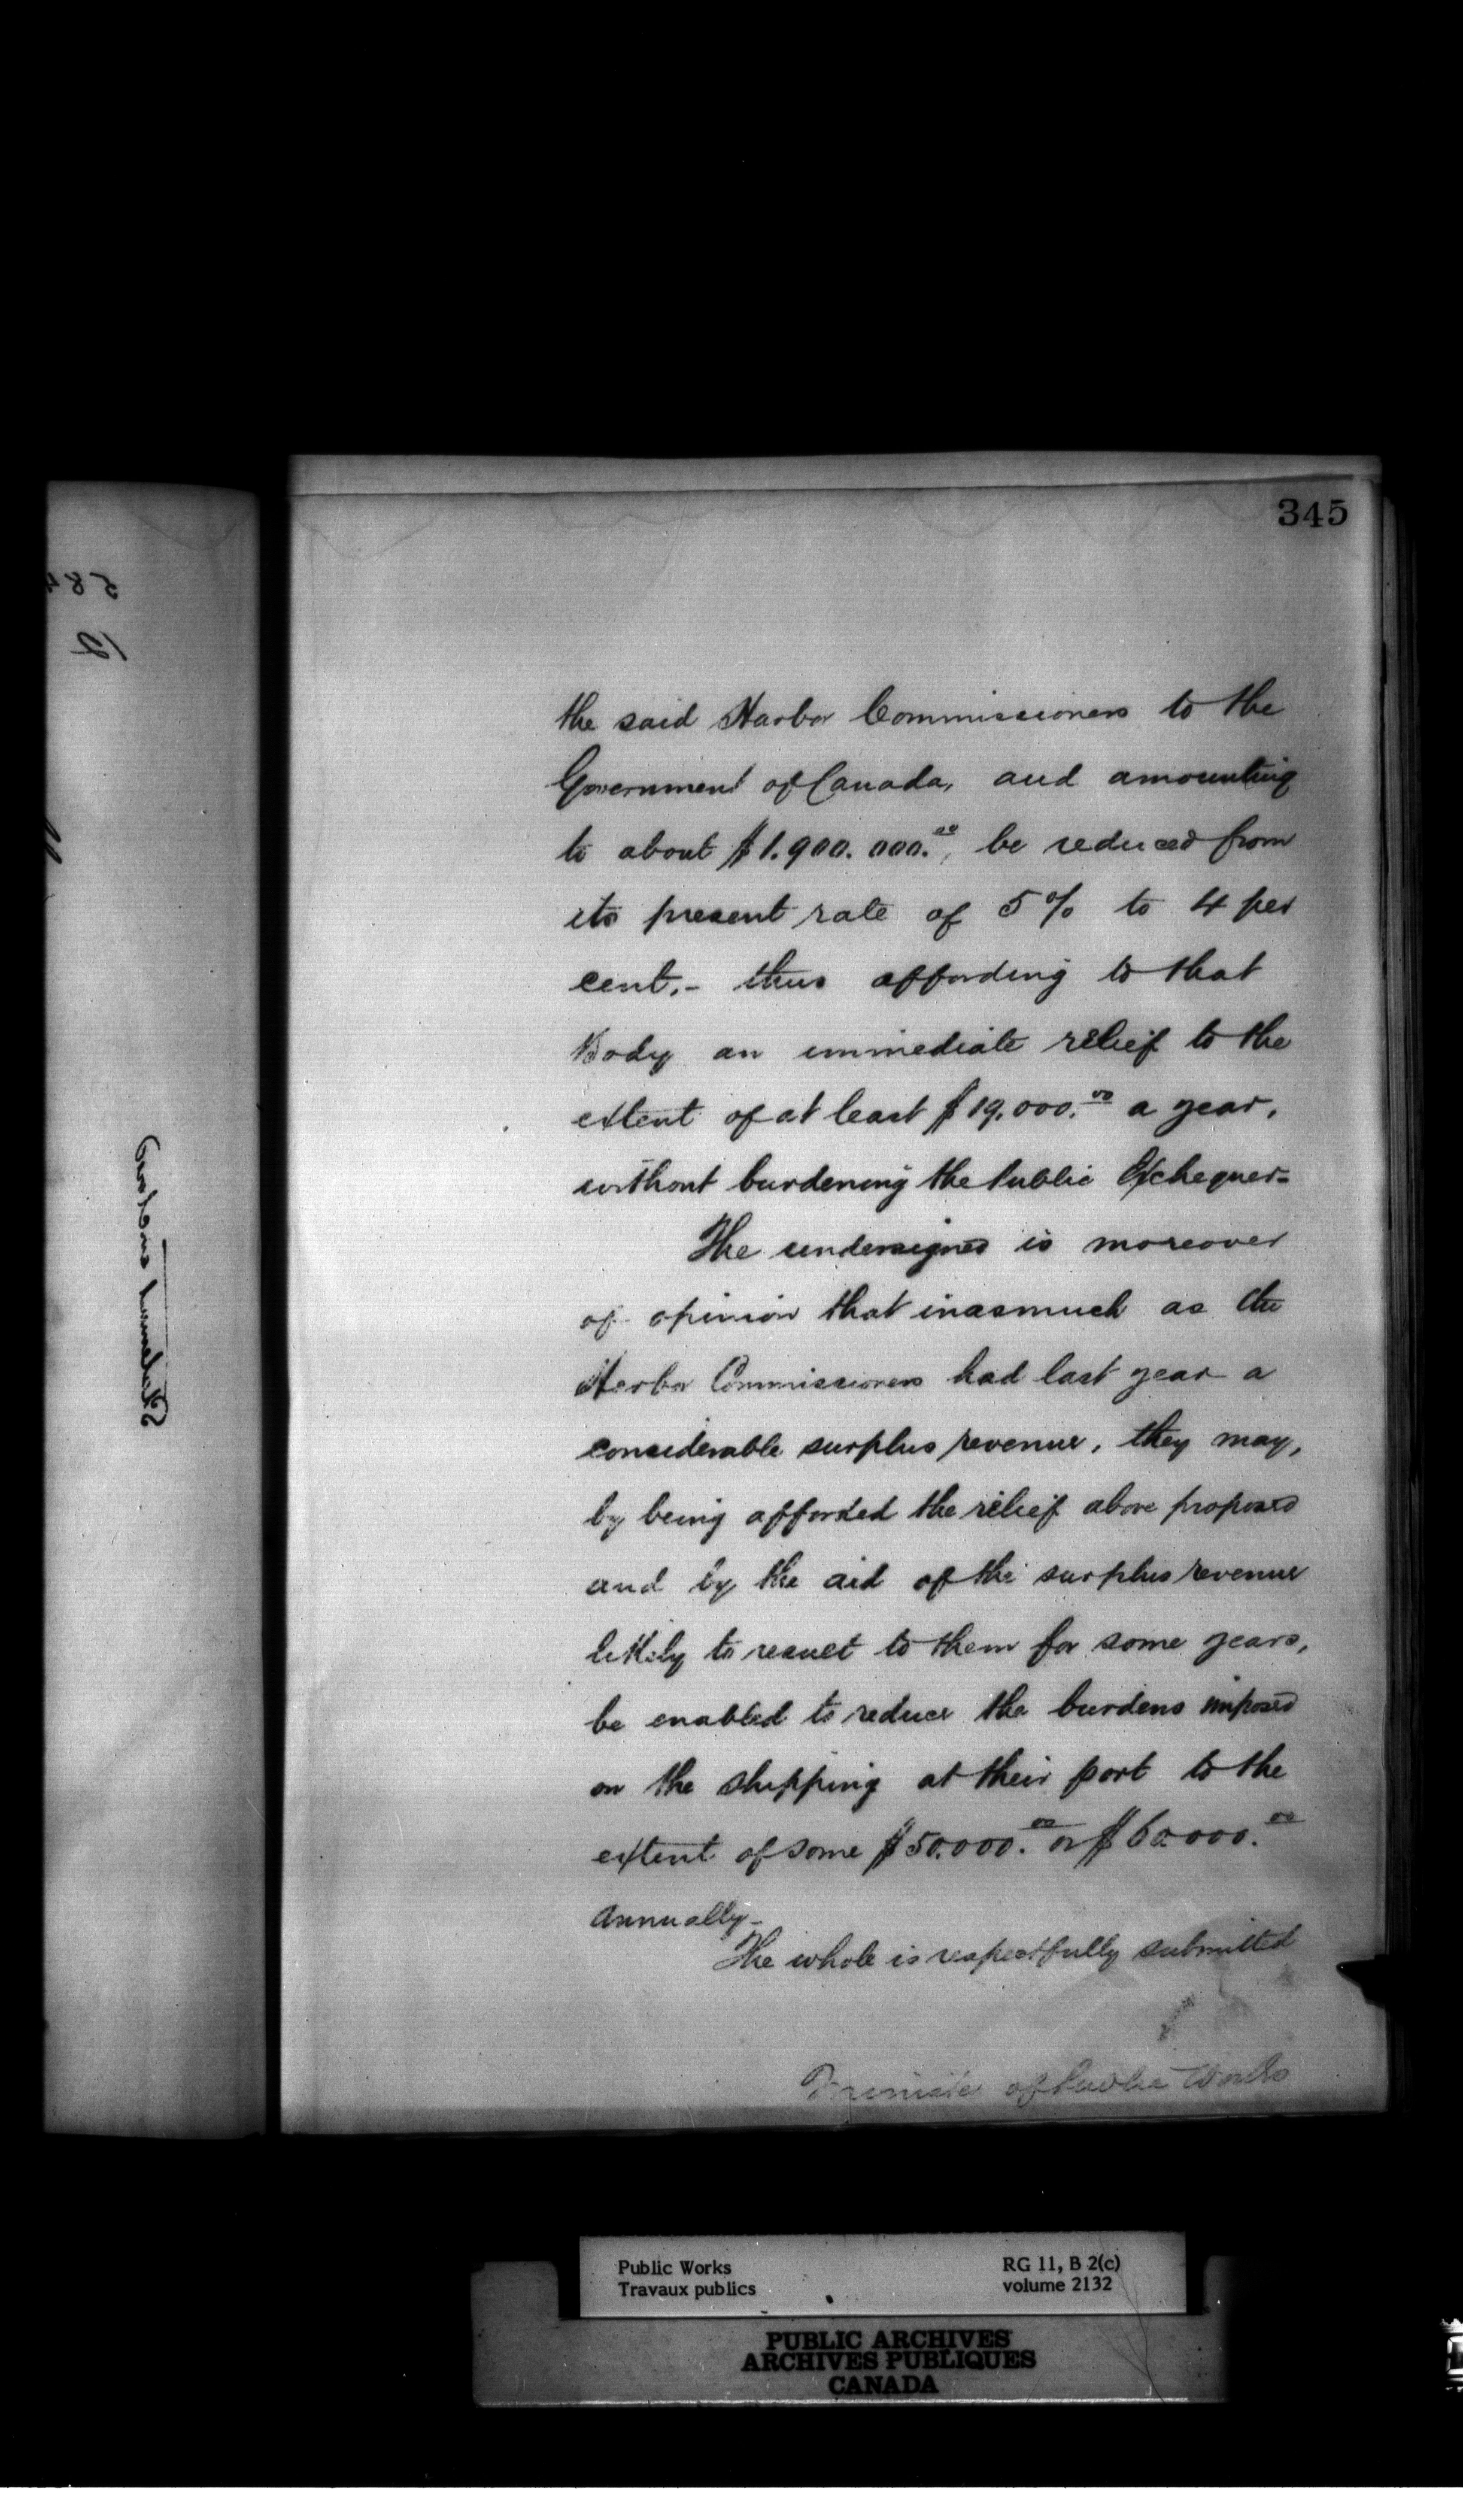 345
the said Harbor Commissioners to the
Government of Canada, and amounting
to about $1.900.000.00, be reduced from
its present rate of 5% to 4 per
cent.- thus affording to that
Body an immediate relief to the
extent of at least $19.000.00 a year,
without burdening the Public Exchequer-
The undersigned is moreover
of opinion that inasmuch as the
Harbor Commissioners had last year a
considerable surplus revenue, they may,
by being afforded the relief above proposed
and by the aid of the surplus revenue
likely to result to them for some years,
be enabled to reduce the burdens imposed
on the shipping at their port to the
extent of some $50.000.00 or $60.000.00
annually-
The whole is respectfully submitted
Minister of Public Works
584
12
Statement enclosed
Public Works
Travaux publics
RG 11, B 2(c)
volume 2132
PUBLIC ARCHIVES
ARCHIVES PUBLIQUES
CANADA